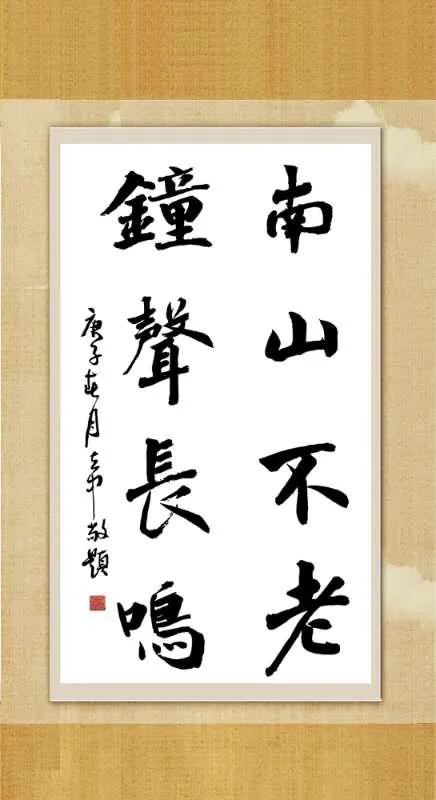 南山不老
鐘聲長鳴
庚子春月 敬題